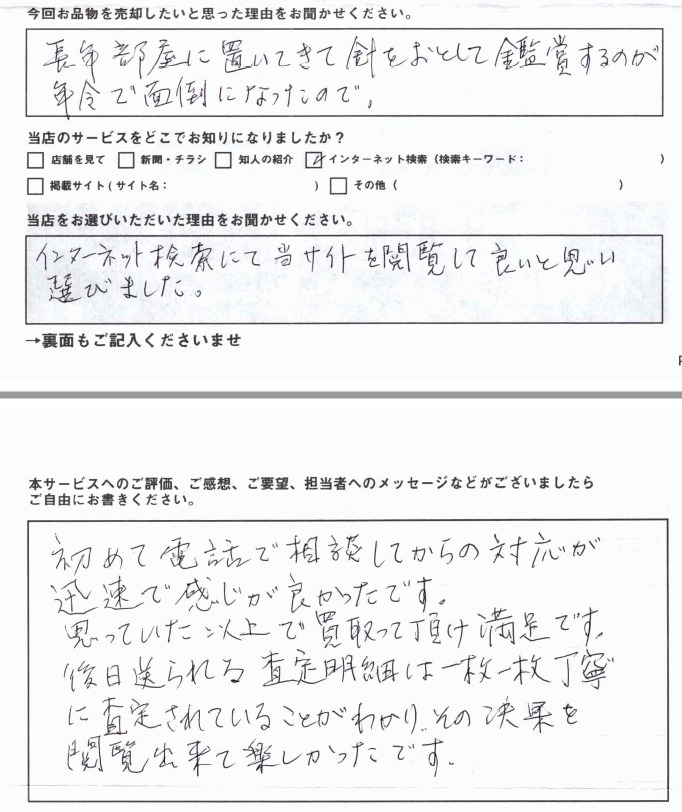 今回お品物を売却したいと思った理由をお聞かせください。
長年部屋に置いてきて針をおとして鑑賞するのが
年令で面倒になったので、
当店のサービスをどこでお知りになりましたか？
□ 店舗を見て □ 新聞・チラシ □ 知人の紹介 ☑ インターネット検索（検索キーワード： ）
□ 掲載サイト（サイト名： ） □ その他（ ）
当店をお選びいただいた理由をお聞かせください。
インターネット検索にて当サイトを閲覧して良いと思い
選びました。
→裏面もご記入くださいませ
本サービスへのご評価、ご感想、ご要望、担当者へのメッセージなどがございましたら
ご自由にお書きください。
初めて電話で相談してからの対応が
迅速で感じが良かったです。
思っていた以上で買取って頂け満足です。
後日送られる査定明細は一枚一枚丁寧
に査定されていることがわかり、その決果を
閲覧出来て楽しかったです。